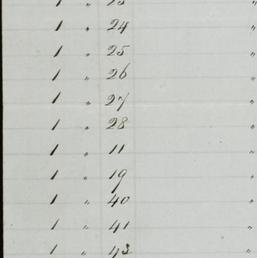 1 " 23 "
1 " 24 "
1 " 25 "
1 " 26 "
1 " 27 "
1 " 28 "
1 " 11 "
1 " 19 "
1 " 40 "
1 " 41 "
1 " 43 "